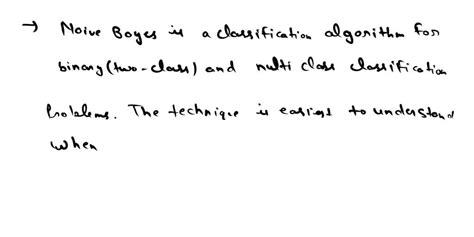 → Naive Bayes is a classification algorithm for
binary (two-class) and multi class classification
Problems. The technique is easiest to understand
when